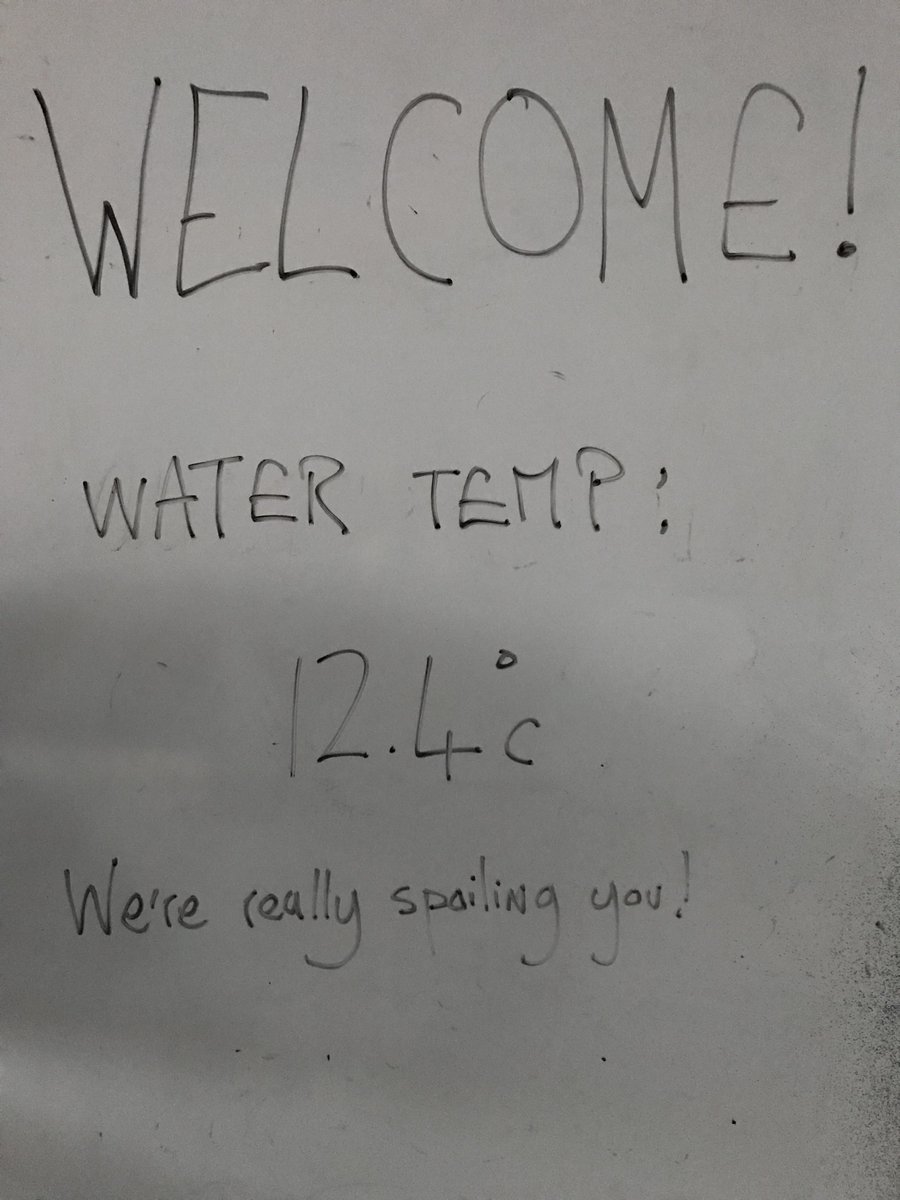 WELCOME!
WATER TEMP:
12.4°c
We're really spoiling you!